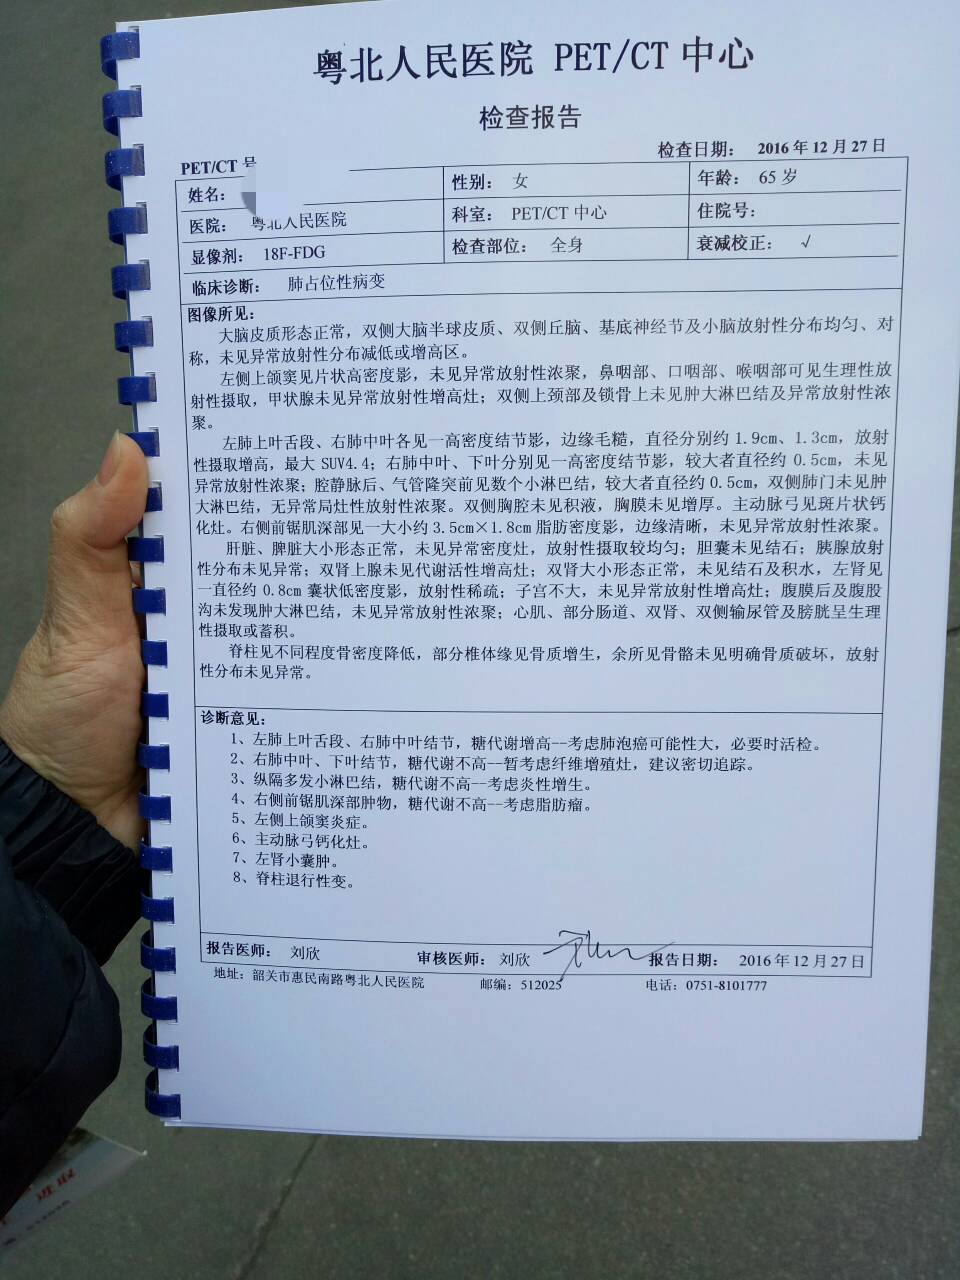 粤北人民医院 PET/CT 中心
检查报告
检查日期： 2016 年 12 月 27 日
PET/CT 号
姓名： 性别： 女 年龄： 65 岁
医院： 粤北人民医院 科室： PET/CT 中心 住院号：
显像剂： 18F-FDG 检查部位： 全身 衰减校正： √
临床诊断： 肺占位性病变
图像所见：
大脑皮质形态正常，双侧大脑半球皮质、双侧丘脑、基底神经节及小脑放射性分布均匀、对
称，未见异常放射性分布减低或增高区。
左侧上颌窦见片状高密度影，未见异常放射性浓聚，鼻咽部、口咽部、喉咽部可见生理性放
射性摄取，甲状腺未见异常放射性增高灶；双侧上颈部及锁骨上未见肿大淋巴结及异常放射性浓
聚。
左肺上叶舌段、右肺中叶各见一高密度结节影，边缘毛糙，直径分别约 1.9cm、1.3cm，放射
性摄取增高，最大 SUV4.4；右肺中叶、下叶分别见一高密度结节影，较大者直径约 0.5cm，未见
异常放射性浓聚；腔静脉后、气管隆突前见数个小淋巴结，较大者直径约 0.5cm，双侧肺门未见肿
大淋巴结，无异常局灶性放射性浓聚。双侧胸腔未见积液，胸膜未见增厚。主动脉弓见斑片状钙
化灶。右侧前锯肌深部见一大小约 3.5cm×1.8cm 脂肪密度影，边缘清晰，未见异常放射性浓聚。
肝脏、脾脏大小形态正常，未见异常密度灶，放射性摄取较均匀；胆囊未见结石；胰腺放射
性分布未见异常；双肾上腺未见代谢活性增高灶；双肾大小形态正常，未见结石及积水，左肾见
一直径约 0.8cm 囊状低密度影，放射性稀疏；子宫不大，未见异常放射性增高灶；腹膜后及腹股
沟未发现肿大淋巴结，未见异常放射性浓聚；心肌、部分肠道、双肾、双侧输尿管及膀胱呈生理
性摄取或蓄积。
脊柱见不同程度骨密度降低，部分椎体缘见骨质增生，余所见骨骼未见明确骨质破坏，放射
性分布未见异常。
诊断意见：
1、左肺上叶舌段、右肺中叶结节，糖代谢增高--考虑肺泡癌可能性大，必要时活检。
2、右肺中叶、下叶结节，糖代谢不高--暂考虑纤维增殖灶，建议密切追踪。
3、纵隔多发小淋巴结，糖代谢不高--考虑炎性增生。
4、右侧前锯肌深部肿物，糖代谢不高--考虑脂肪瘤。
5、左侧上颌窦炎症。
6、主动脉弓钙化灶。
7、左肾小囊肿。
8、脊柱退行性变。
报告医师： 刘欣 审核医师： 刘欣 报告日期： 2016 年 12 月 27 日
地址：韶关市惠民南路粤北人民医院 邮编：512025 电话：0751-8101777